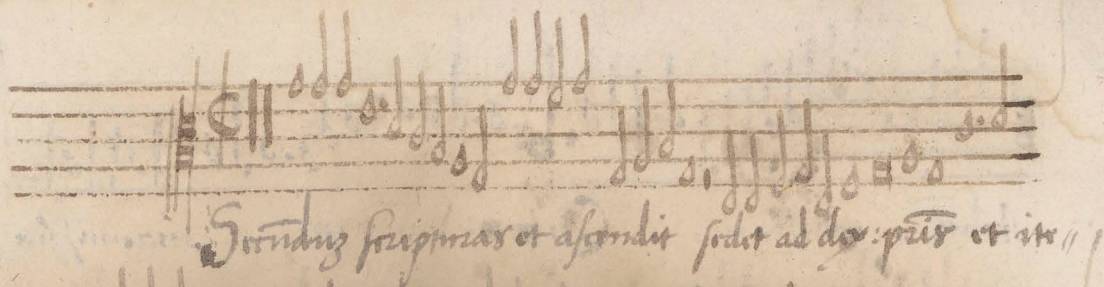 Secūduz scripturas et ascendit sedet ad dex: pris̄ et ite〃